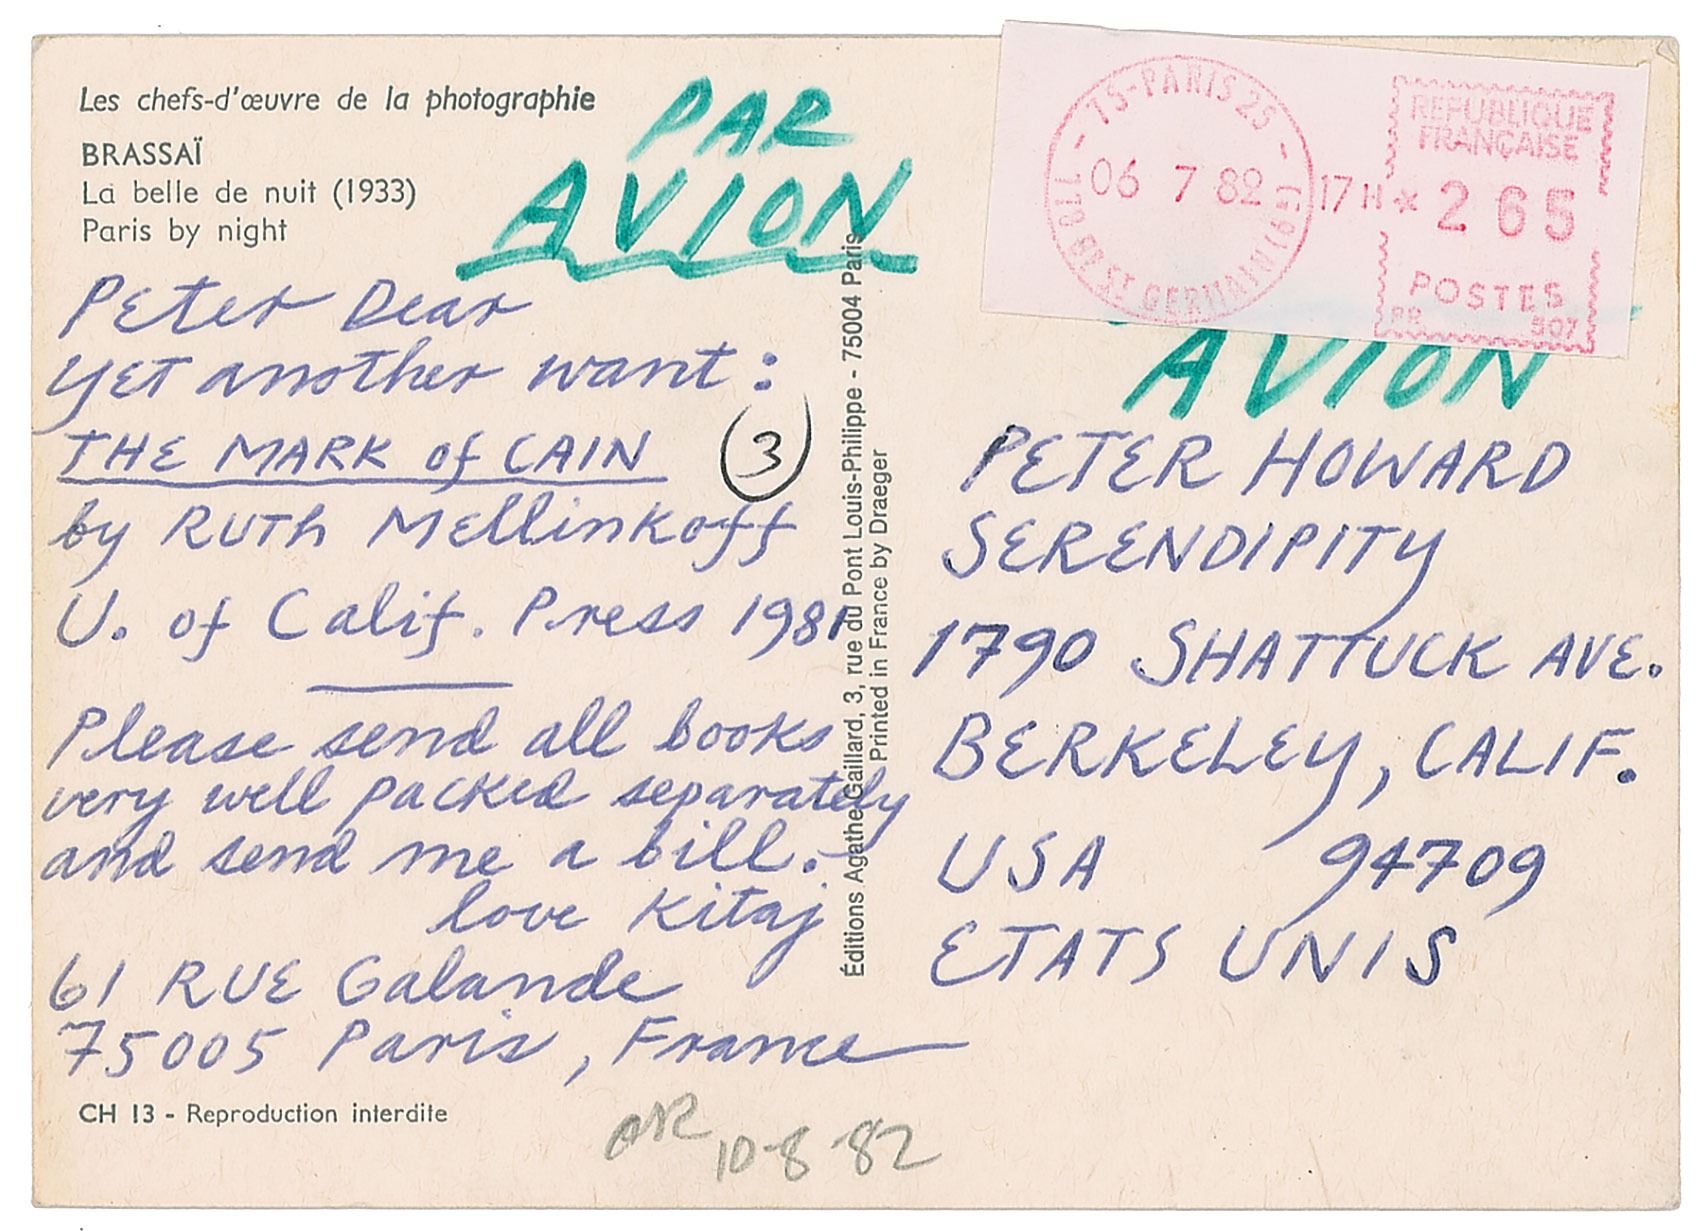 Les chefs-d'œuvre de la photographie
BRASSAÏ
La belle de nuit (1933)
Paris by night
PAR
AVION
Peter Dear
Yet another want:
THE MARK of CAIN
3
by RUTH Mellinkoff
U. of Calif. Press 1981
Please send all books
very well packed separately
and send me a bill.
love Kitaj
61 RUE Galande
75005 Paris, France
CH 13 - Reproduction interdite
10-8-82
Éditions Agathe Gaillard, 3, rue du Pont Louis-Philippe - 75004 Paris
Printed in France by Draeger
75-PARIS 25
06 7 82
17H
BD ST GERMAIN (6E)
REPUBLIQUE
FRANÇAISE
* 265
POSTES
907
AVION
PETER HOWARD
SERENDIPITY
1790 SHATTUCK AVE.
BERKELEY, CALIF.
USA 94709
ETATS UNIS